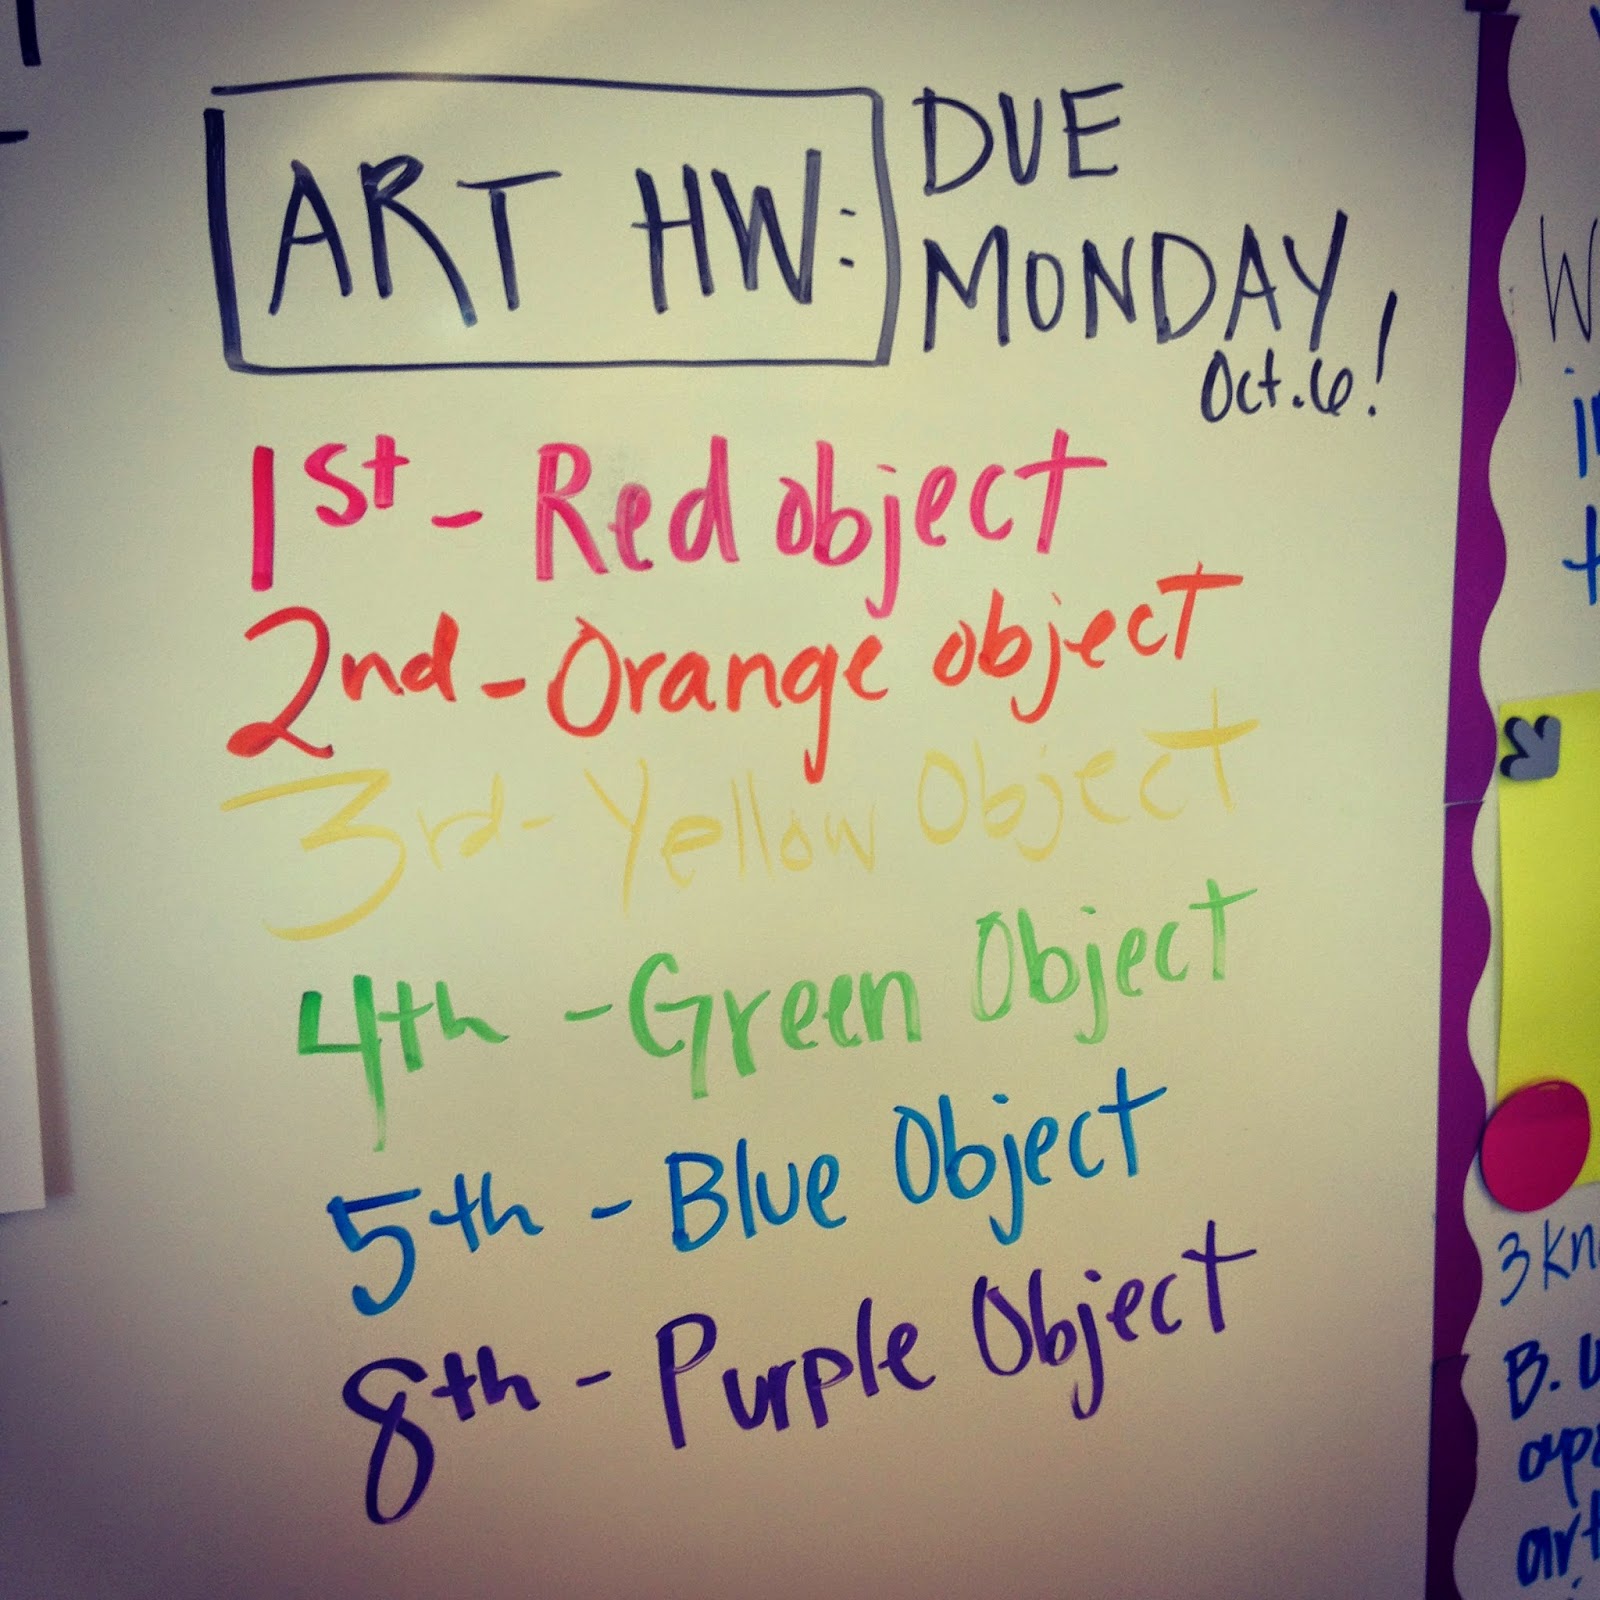 ART HW:
DUE
MONDAY
Oct. 6!
1st - Red object
2nd - Orange object
3rd - Yellow Object
4th - Green Object
5th - Blue Object
8th - Purple Object
3 kn
B. u
art